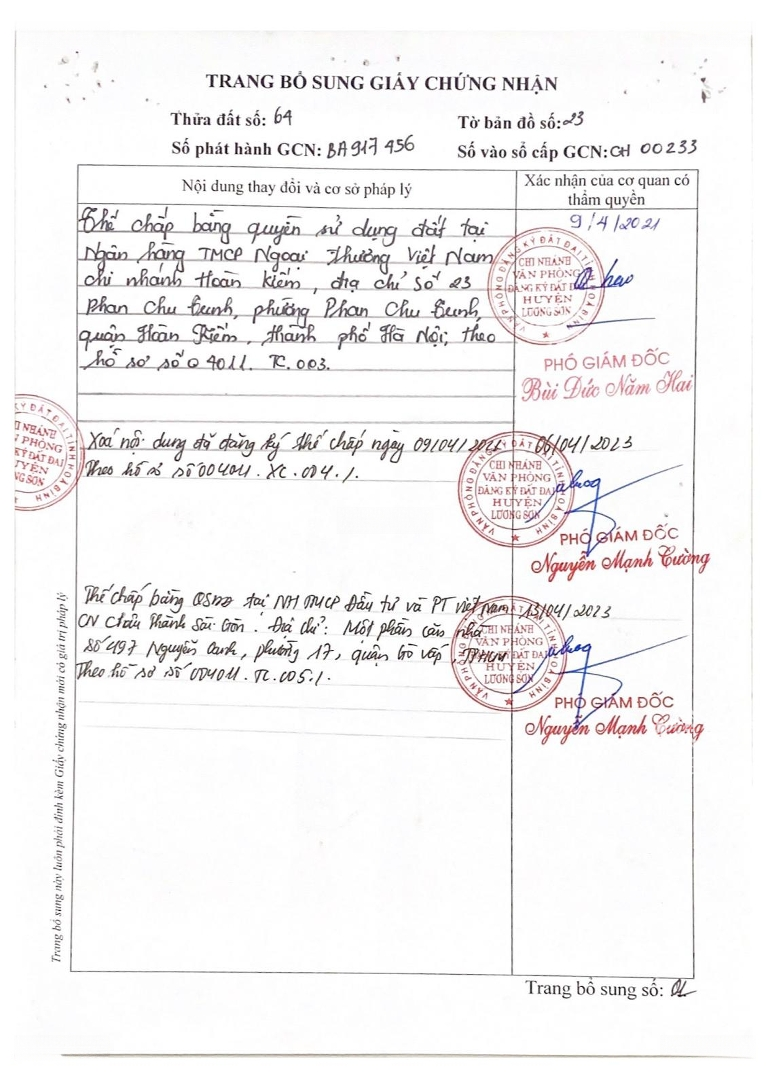 TRANG BỔ SUNG GIẤY CHỨNG NHẬN
Thửa đất số: 64
Tờ bản đồ số: 23
Số phát hành GCN: BA 917 456
Số vào sổ cấp GCN: CH 00233
Nội dung thay đổi và cơ sở pháp lý
Xác nhận của cơ quan có
thẩm quyền
Thế chấp bằng quyền sử dụng đất tại
Ngân hàng TMCP Ngoại Thương Việt Nam
chi nhánh Hoàn Kiếm, địa chỉ số 23
Phan Chu Trinh, phường Phan Chu Trinh,
quận Hoàn Kiếm, thành phố Hà Nội; theo
hồ sơ số 04011. TC.003.
9/4/2021
VĂN PHÒNG ĐĂNG KÝ ĐẤT ĐAI TỈNH HOÀ BÌNH
CHI NHÁNH
VĂN PHÒNG
ĐĂNG KÝ ĐẤT ĐAI
HUYỆN
LƯƠNG SƠN
PHÓ GIÁM ĐỐC
Bùi Đức Năm Hai
Xoá nội dung đã đăng ký thế chấp ngày 09/04/2021
Theo hồ sơ số 004011.XC.004.1.
06/04/2023
VĂN PHÒNG ĐĂNG KÝ ĐẤT ĐAI TỈNH HOÀ BÌNH
CHI NHÁNH
VĂN PHÒNG
ĐĂNG KÝ ĐẤT ĐAI
HUYỆN
LƯƠNG SƠN
PHÓ GIÁM ĐỐC
Nguyễn Mạnh Cường
Thế chấp bằng QSDĐ tại NH TMCP Đầu tư và PT Việt Nam
CN Châu Thành Sài Gòn. Địa chỉ: Một phần căn nhà
số 497 Nguyễn Oanh, phường 17, quận Gò Vấp, TPHCM
Theo hồ sơ số 004011.TC.005.1.
13/04/2023
VĂN PHÒNG ĐĂNG KÝ ĐẤT ĐAI TỈNH HOÀ BÌNH
CHI NHÁNH
VĂN PHÒNG
ĐĂNG KÝ ĐẤT ĐAI
HUYỆN
LƯƠNG SƠN
PHÓ GIÁM ĐỐC
Nguyễn Mạnh Cường
Trang bổ sung này luôn phải đính kèm Giấy chứng nhận mới có giá trị pháp lý
Trang bổ sung số: 01